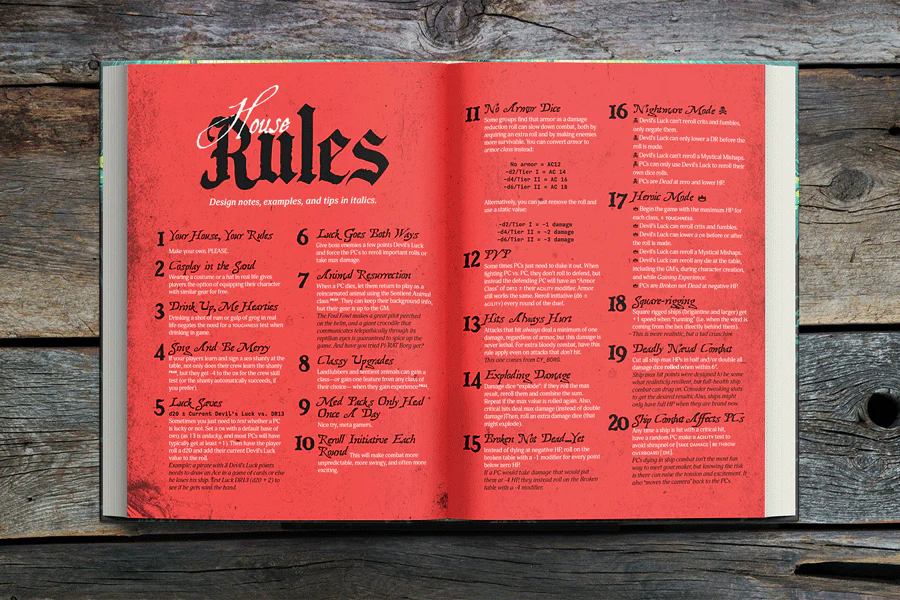 House
Rules
Design notes, examples, and tips in italics.
1 Your House, Your Rules
Make your own, PLEASE.
2 Cosplay in the Soul
Wearing a costume or a hat in real life gives
players the option of equipping their character
with similar gear for free.
3 Drink Up, Me Hearties
Drinking a shot of rum or gulp of grog in real
life negates the need for a TOUGHNESS test when
drinking in game.
4 Sing And Be Merry
If your players learn and sign a sea shanty at the
table, not only does their crew learn the shanty
but they get -4 to the DR for the crew skill
test (or the shanty automatically succeeds, if
you prefer).
5 Luck Saves
d20 ± Current Devil's Luck vs. DR13
Sometimes you just need to test whether a PC
is lucky or not. Set a DR with a default base of
DR13 (as 13 is unlucky, and most PCs will have
typically get at least +1). Then have the player
roll a d20 and add their current Devil's Luck
value to the roll.
Example: a pirate with 2 Devil's Luck points
needs to draw an Ace in a game of cards or else
he loses his ship. Test Luck DR13 (d20 + 2) to
see if he gets want the hand.
6 Luck Goes Both Ways
Give boss enemies a few points Devil's Luck
and force the PCs to reroll important rolls or
take max damage.
7 Animal Resurrection
When a PC dies, let them return to play as a
reincarnated animal using the Sentient Animal
class. They can keep their background info,
but their gear is up to the GM.
The Foul Fowl makes a great pilot perched
on the helm, and a giant crocodile that
communicates telepathically through its
reptilian eyes is guaranteed to spice up the
game. And have you tried Pi RAT Borg yet?
8 Classy Upgrades
Landlubbers and sentient animals can gain a
class—or gain one feature from any class of
their choice— when they gain experience
9 Med Packs Only Heal
Once A Day
Nice try, meta gamers.
10 Reroll Initiative Each
Round This will make combat more
unpredictable, more swingy, and often more
exciting.
11 No Armor Dice
Some groups find that armor as a damage
reduction roll can slow down combat, both by
requiring an extra roll and by making enemies
more survivable. You can convert armor to
armor class instead:
No armor = AC12
-d2/Tier I = AC 14
-d4/Tier II = AC 16
-d6/Tier II = AC 18
Alternatively, you can just remove the roll and
use a static value:
-d2/Tier I = -1 damage
-d4/Tier II = -2 damage
-d6/Tier III = -3 damage
12 PVP
Some times PCs just need to duke it out. When
fighting PC vs. PC, they don't roll to defend, but
instead the defending PC will have an "Armor
Class" of DR12 ± their AGILITY modifier. Armor
still works the same. Reroll initiative (d6 +
AGILITY) every round of the duel.
13 Hits Always Hurt
Attacks that hit always deal a minimum of one
damage, regardless of armor, but this damage is
never lethal. For extra bloody combat, have this
rule apply even on attacks that don't hit.
This one comes from CY_BORG.
14 Exploding Damage
Damage dice "explode": if they roll the max
result, reroll them and combine the sum.
Repeat if the max value is rolled again. Also,
critical hits deal max damage (instead of double
damage). Then, roll an extra damage dice (that
might explode).
15 Broken Not Dead...Yet
Instead of dying at negative HP, roll on the
broken table with a -1 modifier for every point
below zero HP.
If a PC would take damage that would put
them at -4 HP, they instead roll on the Broken
table with a -4 modifier.
16 Nightmare Mode
Devil's Luck can't reroll crits and fumbles,
only negate them.
Devil's Luck can only lower a DR before the
roll is made.
Devil's Luck can't reroll a Mystical Mishaps.
PCs can only use Devil's Luck on their
own dice rolls.
PCs are Dead at zero and lower HP.
17 Heroic Mode
Begin the game with the maximum HP for
each class, ± TOUGHNESS.
Devil's Luck can reroll crits and fumbles.
Devil's Luck can lower a DR before or after
the roll is made.
Devil's Luck can reroll a Mystical Mishaps.
Devil's Luck can reroll any die at the table,
including the GM's, during character creation,
and while Gaining Experience.
PCs are Broken not Dead at negative HP.
18 Square-rigging
Square rigged ships (brigantine and larger) get
+1 speed when "running" (i.e. when the wind is
coming from the hex directly behind them).
This is more realistic, but a tad crunchier.
19 Deadly Naval Combat
Cut all ship max HPs in half and/or double all
damage dice rolled when within 6".
Ship max hit points were designed to be some
what realistically resilient, but full-health ship
combat can drag on. Consider tweaking stats
to get the desired results. Also, ships might
only have full HP when they are brand new.
20 Ship Combat Affects PCs
Any time a ship is hit with a critical hit,
have a random PC make a AGILITY test to
avoid shrapnel or [HAND DAMAGE | BE THROW
OVERBOARD | DIE].
PCs dying in ship combat isn't the most fun
way to meet your maker, but knowing the risk
is there can raise the tension and excitement. It
also "moves the camera" back to the PCs.